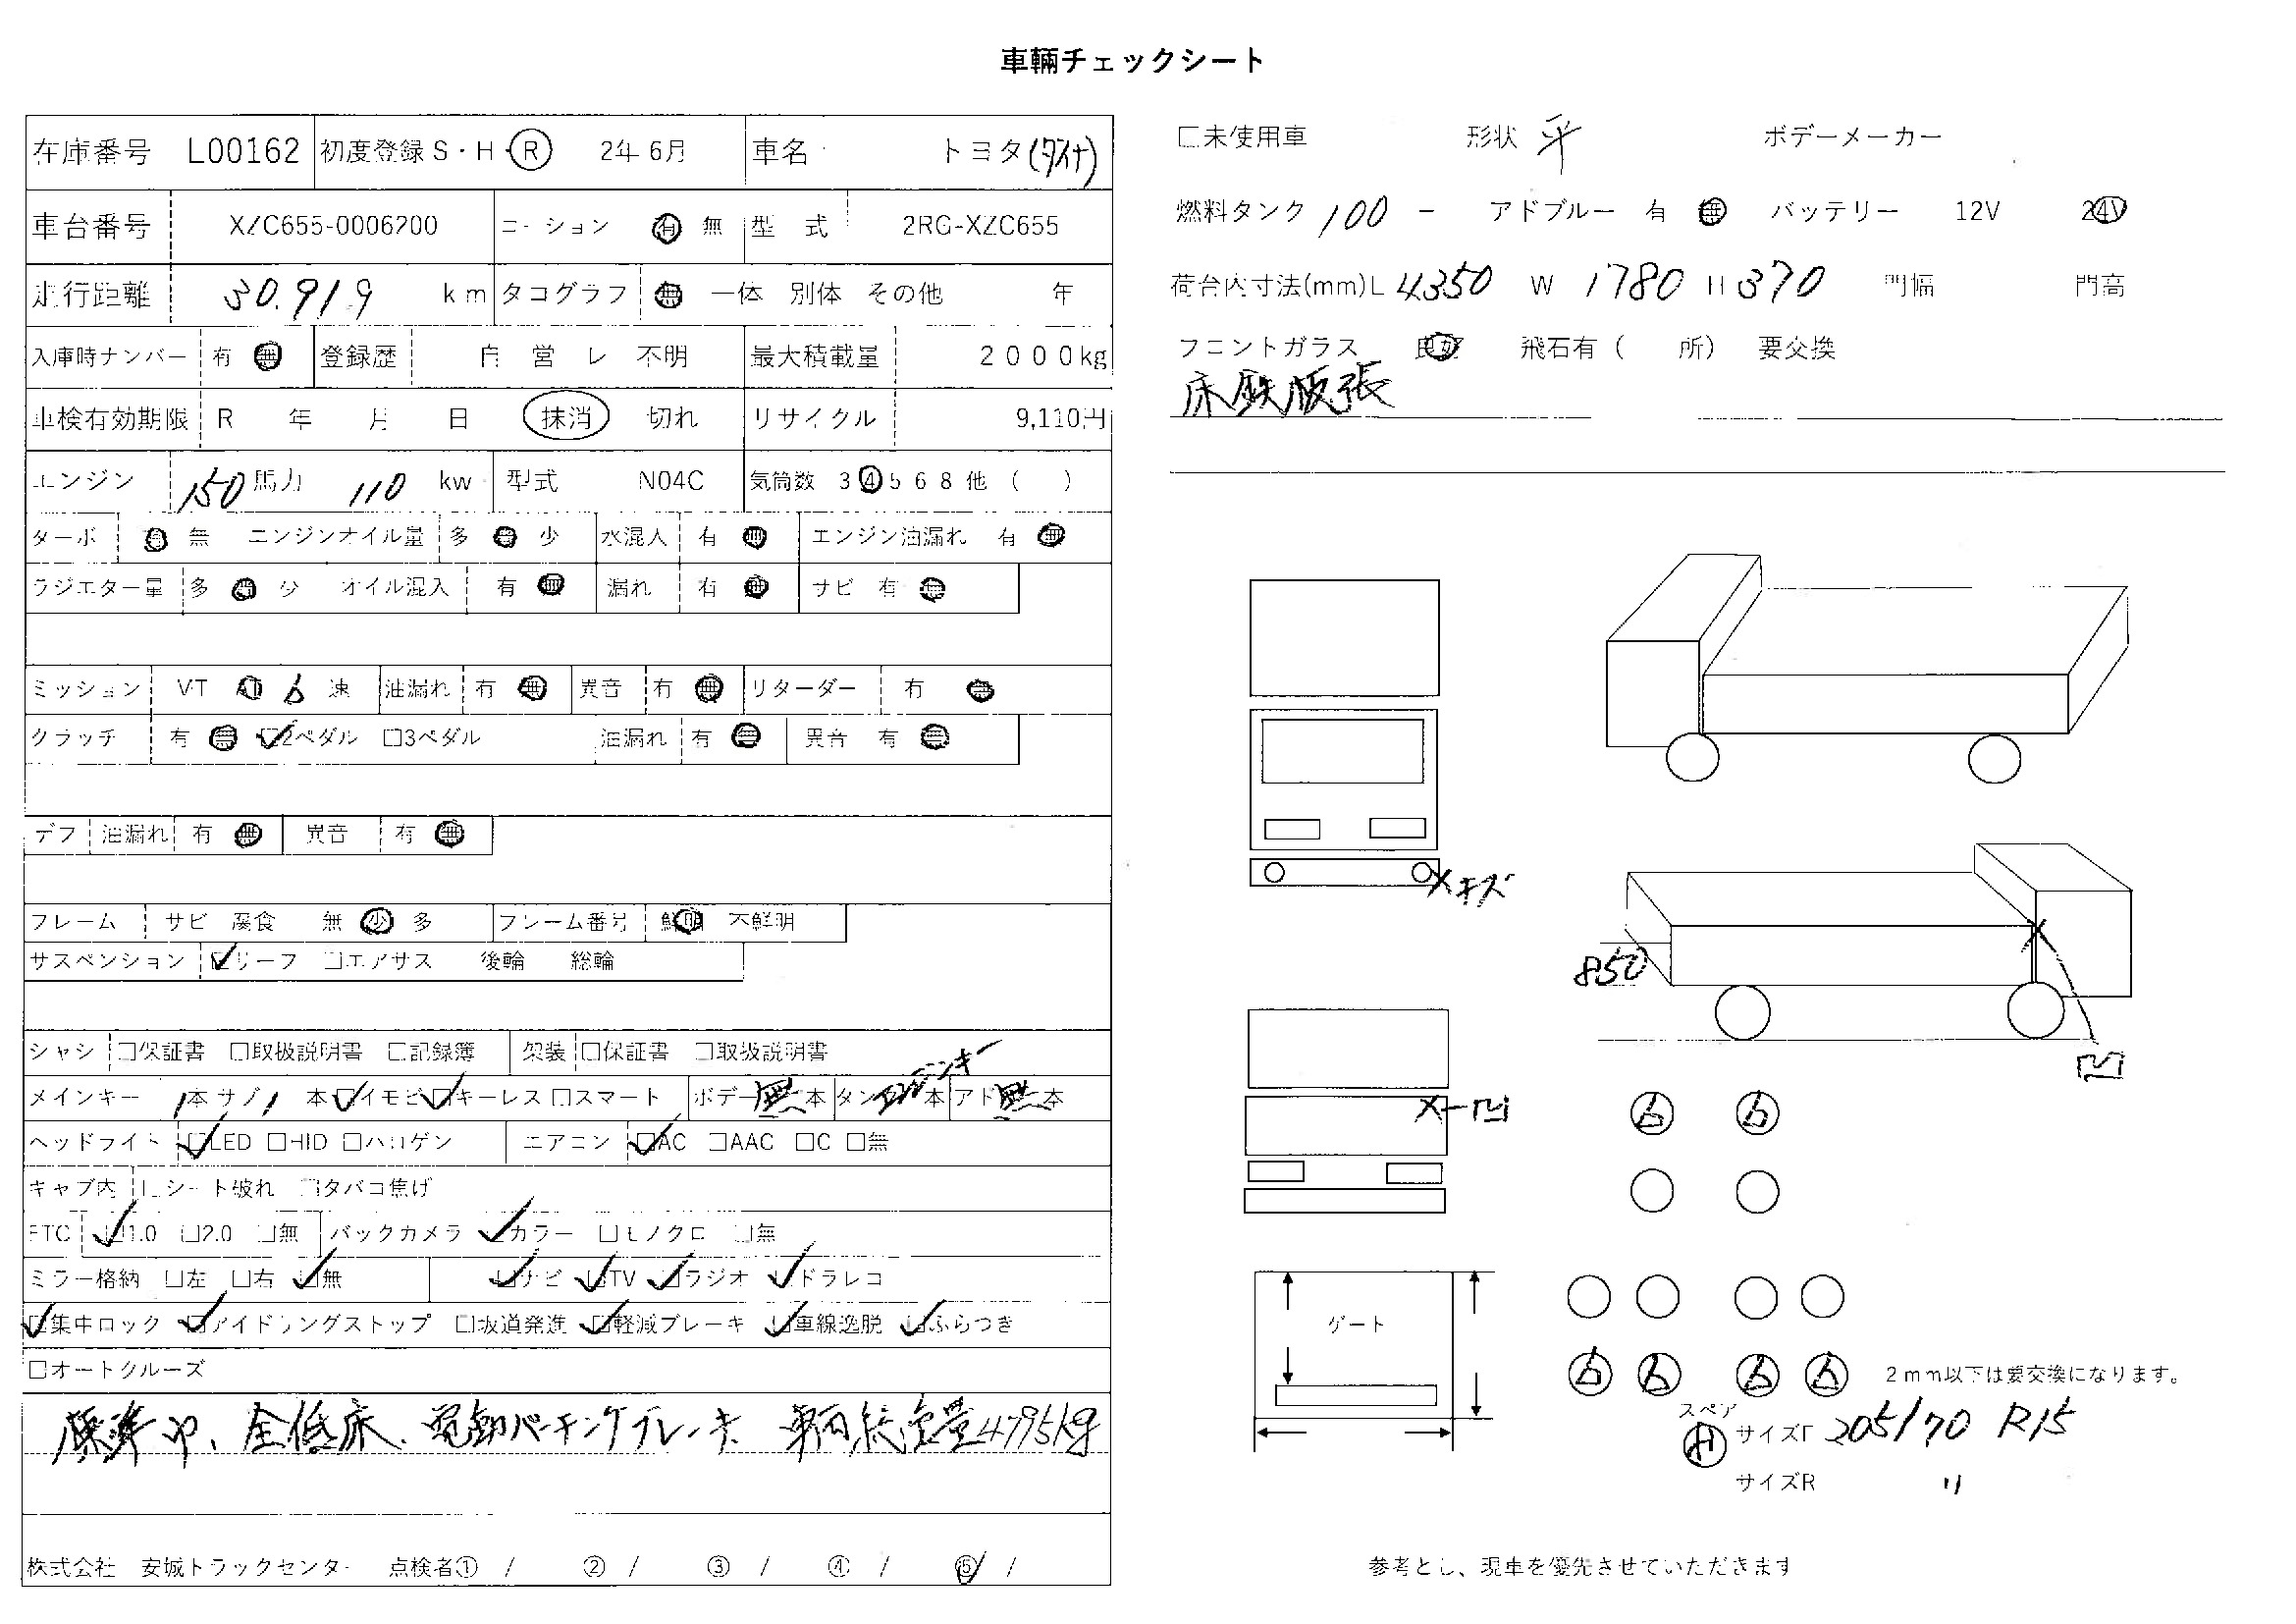 車輛チェックシート
在庫番号 L00162 初度登録 S・H・R 2年 6月 車名 トヨタ(ダイナ)
車台番号 XZC655-0006200 コーション 有 無 型 式 2RG-XZC655
走行距離 30.919 km タコグラフ 無 一体 別体 その他 年
入庫時ナンバー 有 無 登録歴 自 営 レ 不明 最大積載量 2000kg
車検有効期限 R 年 月 日 抹消 切れ リサイクル 9,110円
エンジン 150 馬力 110 kw 型式 N04C 気筒数 3 4 5 6 8 他 ( )
ターボ 有 無 エンジンオイル量 多 少 水混入 有 無 エンジン油漏れ 有 無
ラジエター量 多 少 オイル混入 有 無 漏れ 有 無 サビ 有 無
ミッション MT AT 6 速 油漏れ 有 無 異音 有 無 リターダー 有 無
クラッチ 有 無 □2ペダル □3ペダル 油漏れ 有 無 異音 有 無
デフ 油漏れ 有 無 異音 有 無
フレーム サビ 腐食 無 少 多 フレーム番号 鮮明 不鮮明
サスペンション □リーフ □エアサス 後輪 総輪
シャシ □保証書 □取扱説明書 □記録簿 架装 □保証書 □取扱説明書
エンジンキー
メインキー 1本 サブ 1 本 □イモビ □キーレス □スマート ボデー 無 本 タン 本 アド 無 本
ヘッドライト □LED □HID □ハロゲン エアコン □AC □AAC □C □無
キャブ内 □シート破れ □タバコ焦げ
ETC □1.0 □2.0 □無 バックカメラ □カラー □モノクロ □無
ミラー格納 □左 □右 □無 □ナビ □TV □ラジオ □ドラレコ
□集中ロック □アイドリングストップ □坂道発進 □軽減ブレーキ □車線逸脱 □ふらつき
□オートクルーズ
標準巾、全低床、電動パーキングブレーキ 車両総重量4795kg
株式会社 安城トラックセンター 点検者① / ② / ③ / ④ / ⑤ /
□未使用車 形状 平 ボデーメーカー
燃料タンク 100 - アドブルー 有 無 バッテリー 12V 24V
荷台内寸法(mm)L 4350 W 1780 H 370 門幅 門高
フロントガラス 良好 飛石有( 所) 要交換
床鉄板張
X キズ
850
凹
X-凹
6 6
ゲート
6 6 6 6 2mm以下は要交換になります。
スペア
サイズF 205/70 R15
サイズR 〃
参考とし、現車を優先させていただきます